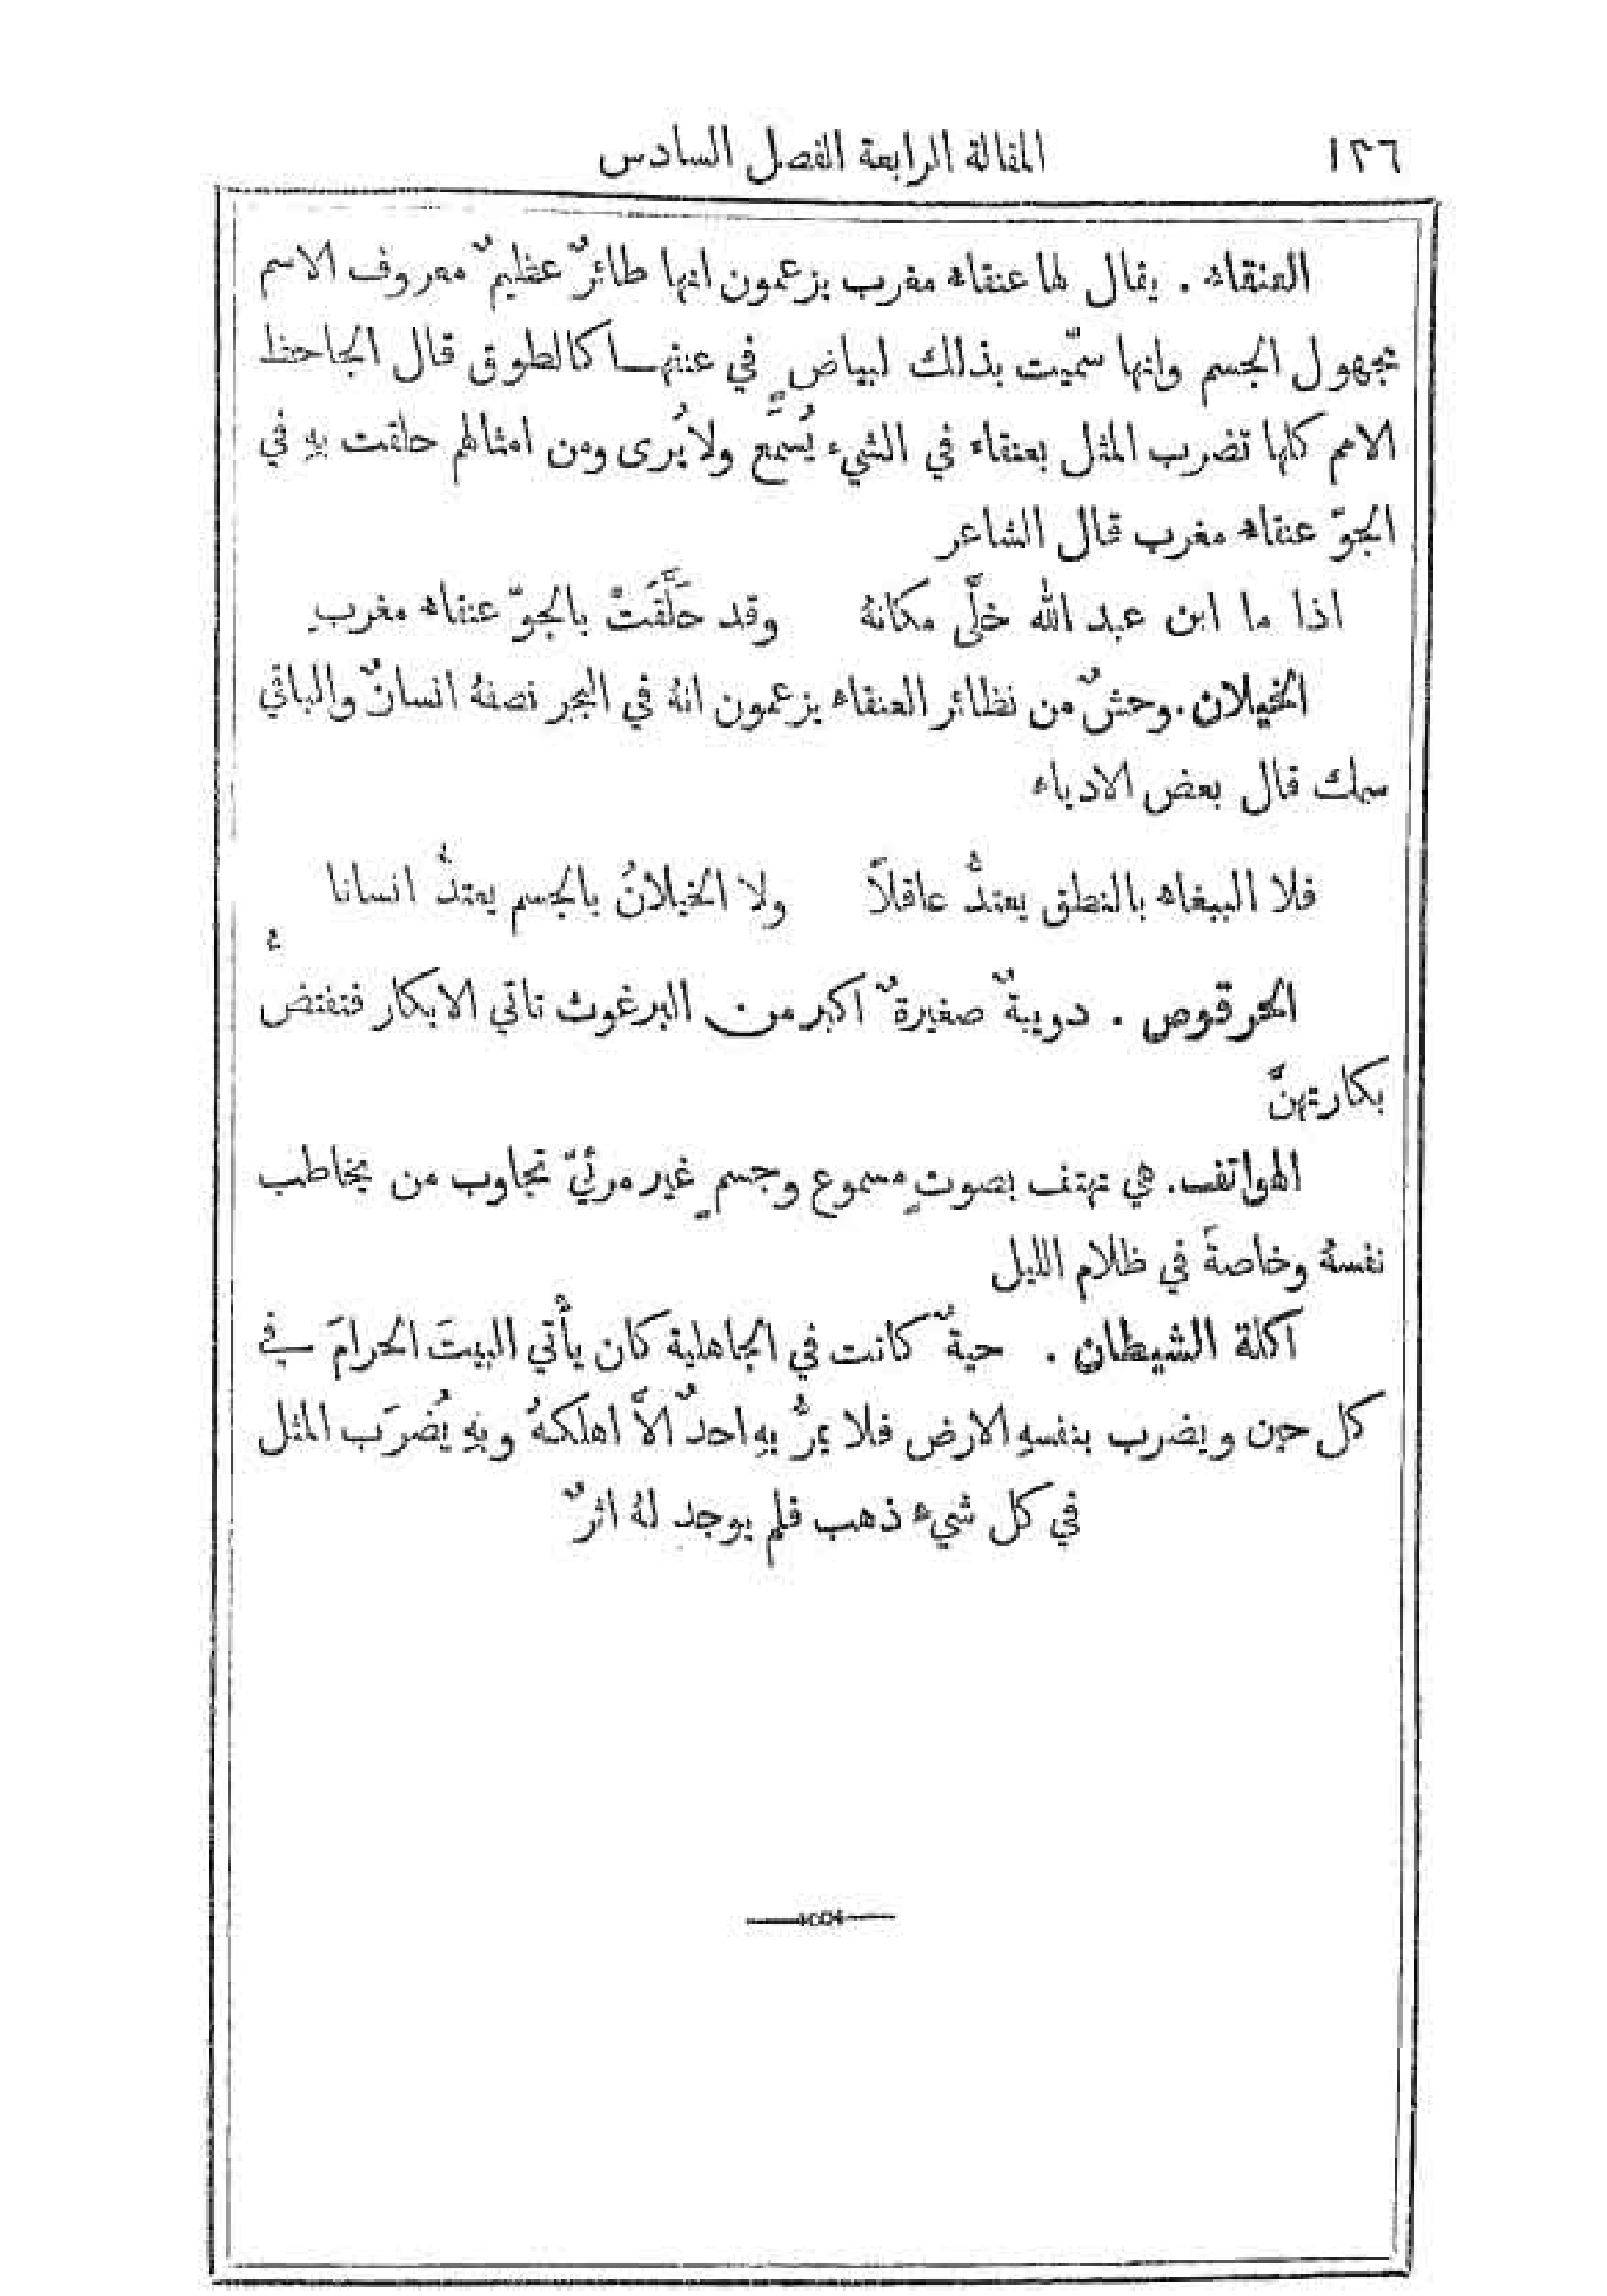 ١٣٦ المقالة الرابعة الفصل السادس
العنقاء . يقال لها عنقاء مغرب يزعمون انها طائرٌ عظيمٌ معروف الاسم
مجهول الجسم وانها سمّيت بذلك لبياضٍ في عنقهـا كالطوق قال الجاحظ
الامم كلها تضرب المثل بعنقاء في الشيء يُسمَع ولا يُرى ومن امثالهم حلقت بهِ في
الجوّ عنقاء مغرب قال الشاعر
اذا ما ابن عبد الله خلَّى مكانهُ وقد حَلَّقَتْ بالجوّ عنقاء مغربِ
الخيلان . وحشٌ من نظائر العنقاء يزعمون انهُ في البحر نصفهُ انسانٌ والباقي
سمك قال بعض الادباء
فلا الببغاء بالنطق يعتدُّ عاقلاً ولا الخيلانُ بالجسم يعتدُّ انسانا
الحرقوص . دويبةٌ صغيرةٌ اكبر من البرغوث تاتي الابكار فتفتضُّ
بكارتهنَّ
الهواتف . هي تهتف بصوتٍ مسموع وجسمٍ غير مرئيّ تجاوب من يخاطب
نفسهُ وخاصةً في ظلام الليل
اكلة الشيطان . حيةٌ كانت في الجاهلية كان يأْتي البيتَ الحرامَ في
كل حين ويضرب بنفسهِ الارض فلا يمرُّ بهِ احدٌ الاَّ اهلكهُ وبهِ يُضرَب المثل
في كل شيء ذهب فلم يوجد لهُ اثرٌ